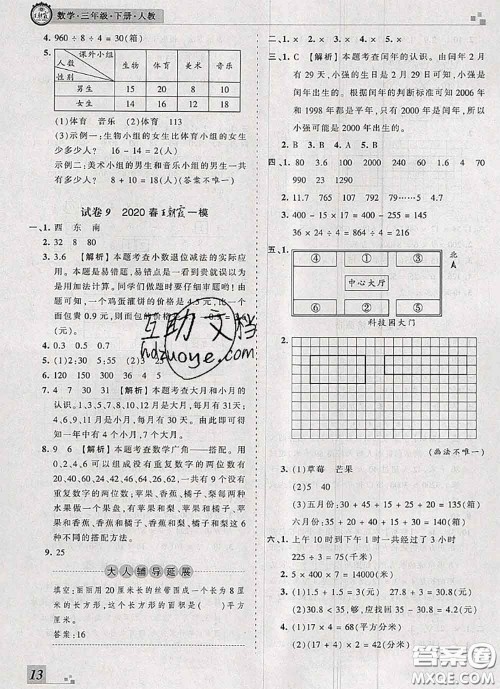 数学·三年级·下册·人教
4. 960÷8÷4=30(箱)
5.
课外小组
人数
性别
生物 体育 美术 音乐
男生 15 20 8 10
女生 16 14 12 18
(1)体育 音乐 (2)体育 113
(3)示例一:生物小组的女生比体育小组的女生
多多少人? 16-14=2(人)
示例二:美术小组的男生和音乐小组的男生一共
有多少人? 8+10=18(人)(答案不唯一)
试卷9 2020春王朝霞一模
一、1. 四 东 南
2. 32 8 80
3. 3.6 【解析】本题考查小数退位减法的实际应
用。本题是易错题,易错点是一看到“贵”就用
加法计算。同学们做题时要仔细审题哟!由
题可知,一个鸡蛋灌饼的价格是4.5元,比一个
面包贵0.9元,则面包的价格是
5. (1)2 (2)3 55
7. 4 7 31 【解析】本题考查大月和小月的
认识。1,3,5,7,8,10,12月是大月,每月有31天;
4,6,9,11月是小月,每月有30天。由此即可得
出一年中有4个小月,7个大月。
8. 9 6 【解析】本题考查数学广角——搭配。
可以组成没有重复数字的两位数有
20,23,25,30,32,35,50,52,53,一共有9个没有
重复数字的两位数;苹果、香蕉、橘子、梨,每两种水
果做一个果盘,有苹果和香蕉、苹果和橘子、苹
果和梨、香蕉和橘子、香蕉和梨、橘子和梨这6
种不同的搭配方法。
9. 25
大人辅导延展
填空:丽丽用20厘米长的丝带围成一个长为8厘
米的长方形,这个长方形的面积是( )平方
厘米。
答案:16
13
二、1. × 2. × 3. × 4. √ 5. ×
三、1. C 【解析】本题考查闰年的认识。由闰年2月
有29天,小强的生日是2月29日可知,小强是
闰年出生的。根据闰年的判断标准可知2006年
和1998年都是平年,只有2000年是闰年,所以
小强可能是2000年出生的。
2. B 3. B 4. A 5. B
四、1. 80 3.6 100 25 240 1.8
990 1200 120 0 40 350
2. 1127 320 115 615
3. 400-15×17=400-255=145
36×24÷4=864÷4=216
五、1.
北
④ ⑤ ⑥
中心大厅
① ② ③
科技园大门
2.
(画法不唯一)
3. (1)草莓 芒果
(2)40 20
(3)五月份:30+45+15+35=200(箱)
六月份:35+40+20+60+45=200(箱)
六、1. 上午10时到下午1时一共经过了3小时
225÷3=75(千米)
2. (1)30.8-3=27.8(元) 27.8+3=30.8(元)
(2)30.8<35,够了,要找回35-30.8=4.2(元)
3. (1)17×4=68(平方分米)
(2)(17+4)×2=42(分米)
4. (1)17×4=68(平方千米)
互助文档
hdzuoye.com
答案圈
MXQE.COM